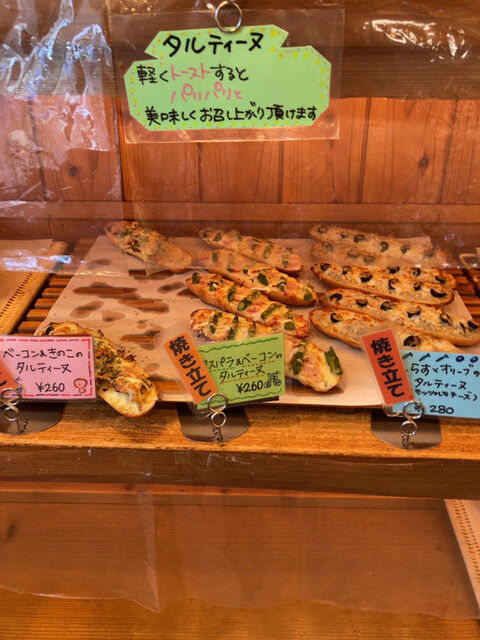 タルティーヌ
軽くトーストすると
パリパリと
美味しくお召し上がり頂けます
ベーコン&きのこの
タルティーヌ
¥260
焼き立て
スパラ&ベーコンの
タルティーヌ
¥260
焼き立て
らすとオリーブの
タルティーヌ
モッツァレラチーズ)
¥280